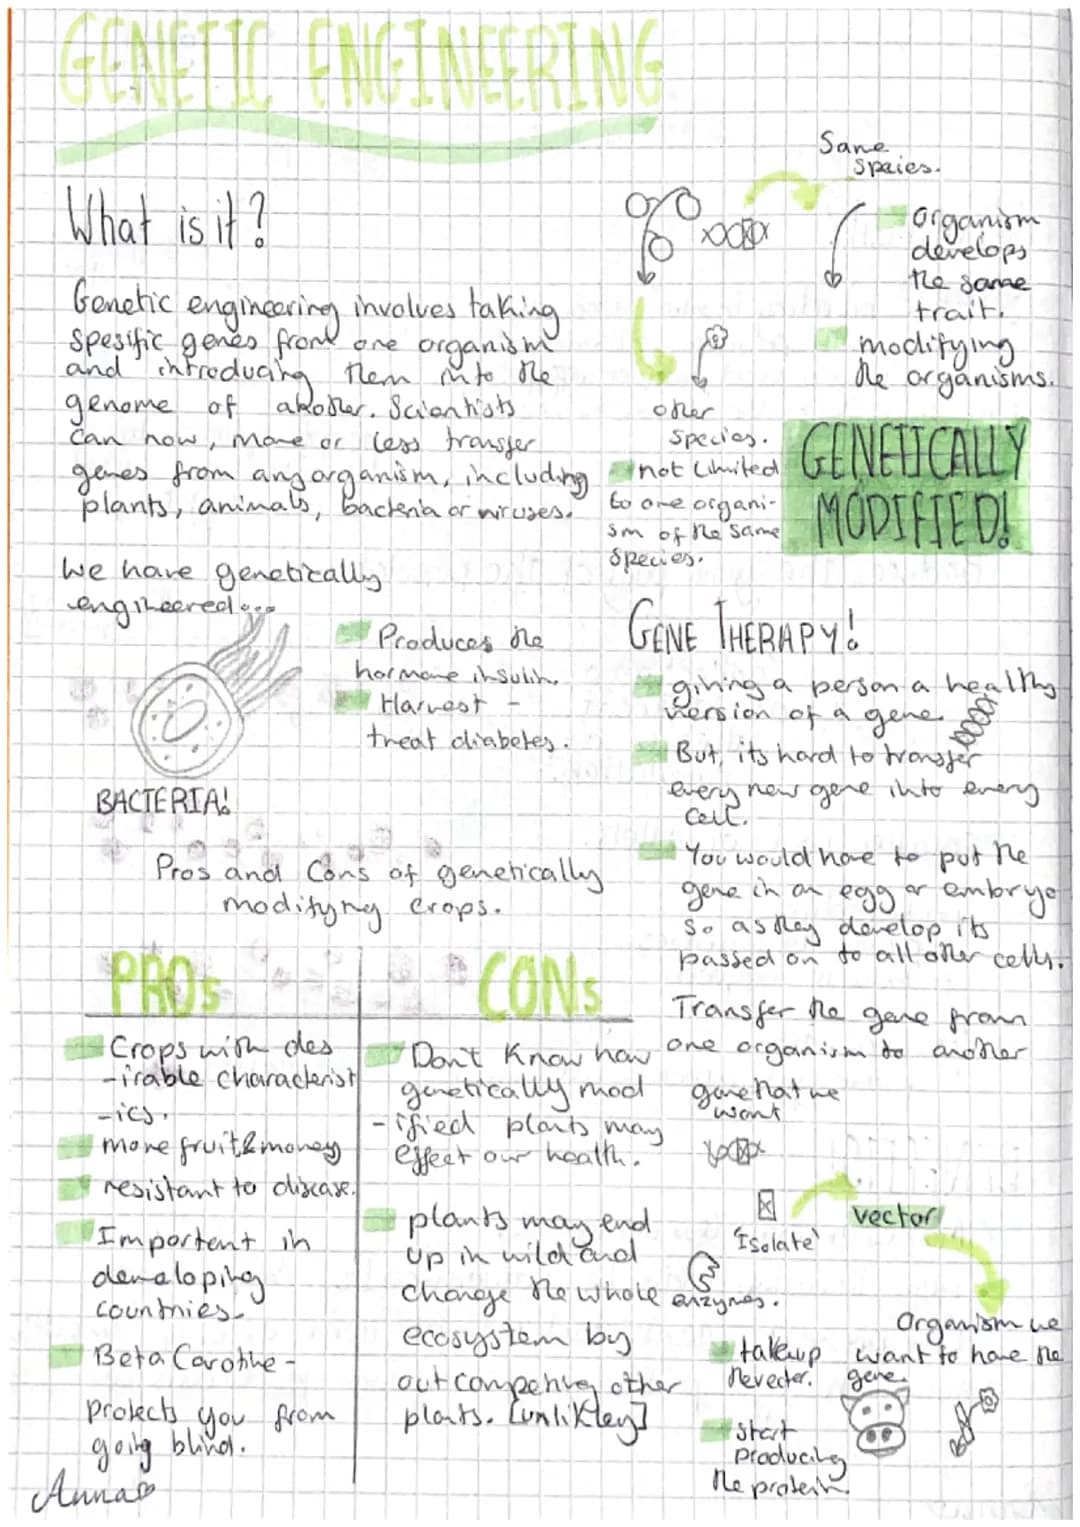 GENETIC ENGINEERING
What is it?
Genetic engineering involves taking
spesific genes from one organism
and introducing them into the
genome of another. Scientists
can now, more or less transfer
genes from any organism, including
plants, animals, bacteria or viruses.
Same
species.
organism
develops
the same
trait.
modifying
the organisms.
other
species.
not limited
to one organi-
sm of the same
species.
GENETICALLY
MODIFIED!
We have genetically
engineered...
Produces the
hormone insulin.
Harvest -
treat diabetes.
BACTERIA!
GENE THERAPY!
giving a person a healthy
version of a gene.
But, its hard to transfer
every new gene into every
cell.
You would have to put the
gene in an egg or embryo
so as they develop its
passed on to all other cells.
Pros and Cons of genetically
modifyng crops.
PROs
Crops with des
-irable characterist
-ics.
more fruit & money
resistant to disease.
Importent in
developing
countries
Beta Carotine -
protects you from
going blind.
Anna
CONs
Don't know how
genetically mod
-ified plants may
effect our health.
plants may end
up in wild and
change the whole
ecosystem by
out competing other
plants. [unlikley]
Transfer the gene from
one organism to another
gene that we
want
'Isolate'
enzymes.
vector
Organism we
want to have the
gene.
takeup
the vector.
start
producing
the protein.